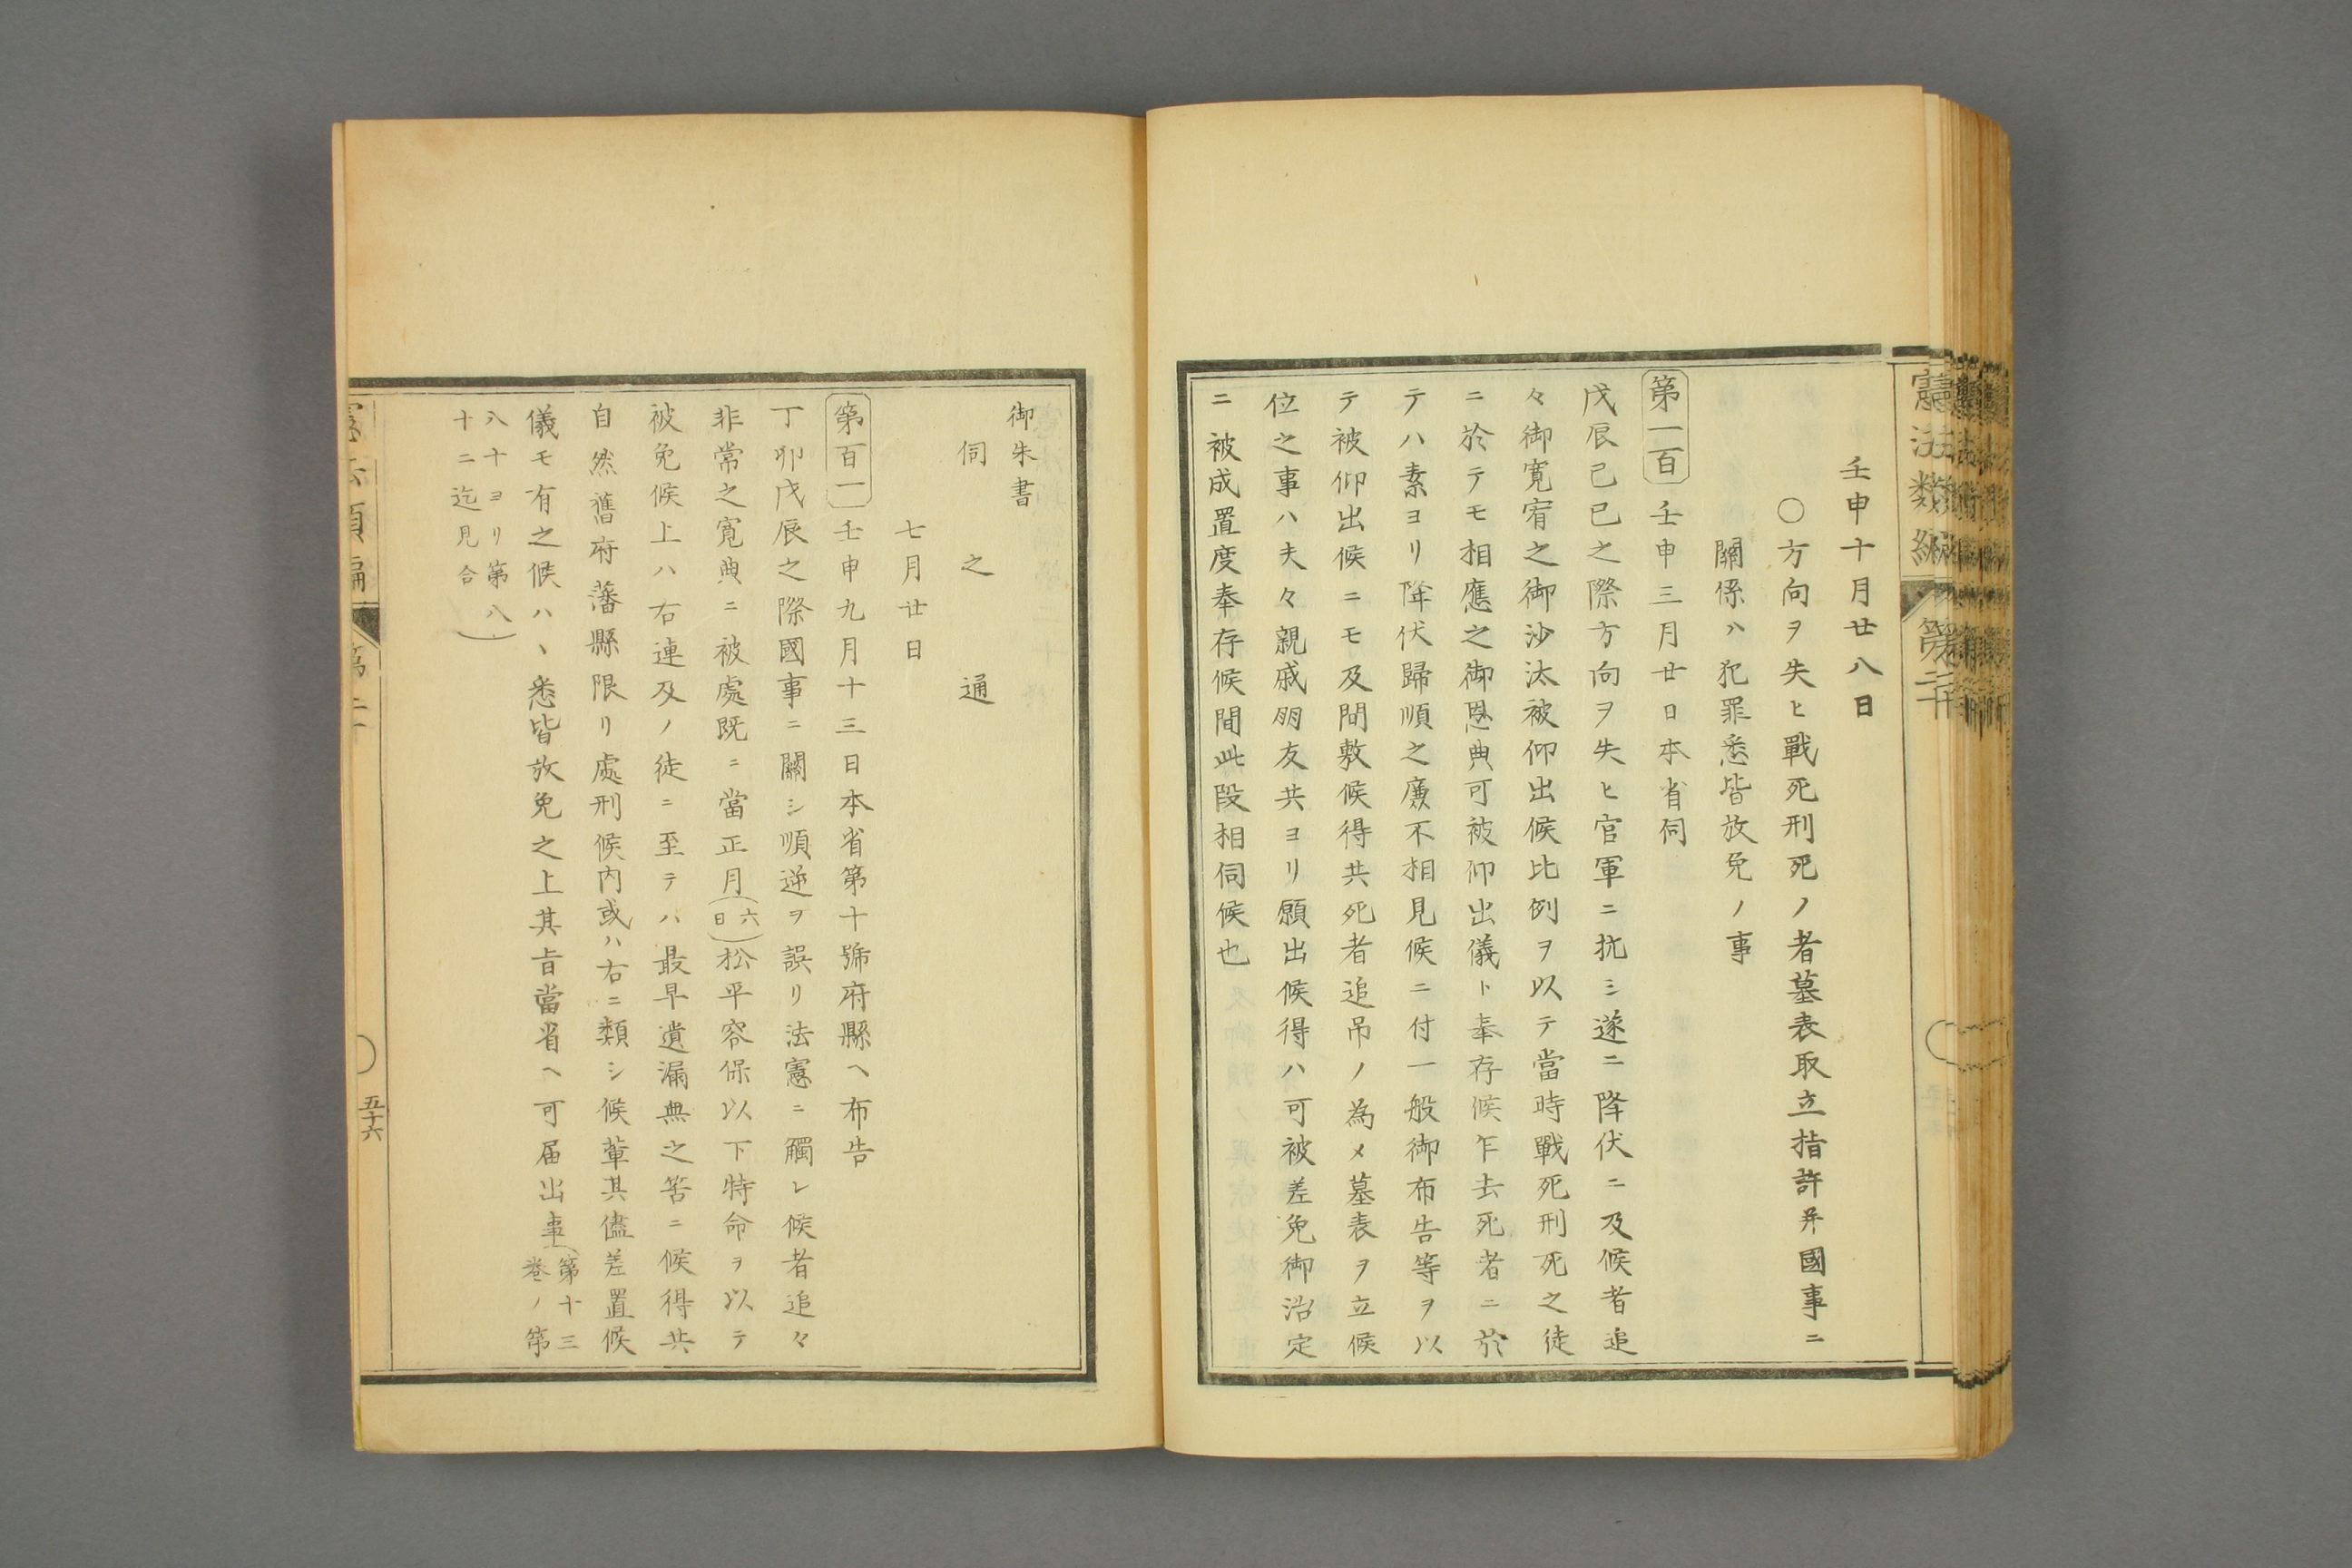 憲法類編
第二十
壬申十月廿八日
〇方向ヲ失ヒ戰死刑死ノ者墓表取立指許并國事ニ
關係ハ犯罪悉皆放免ノ事
第一百 壬申三月廿日本省伺
戊辰己巳之際方向ヲ失ヒ官軍ニ抗シ遂ニ降伏ニ及候者追
々御寛宥之御沙汰被仰出候比例ヲ以テ當時戰死刑死之徒
ニ於テモ相應之御恩典可被仰出儀ト奉存候乍去死者ニ於
テハ素ヨリ降伏歸順之廉不相見候ニ付一般御布告等ヲ以
テ被仰出候ニモ及間敷候得共死者追吊ノ為メ墓表ヲ立候
位之事ハ夫々親戚朋友共ヨリ願出候得ハ可被差免御治定
ニ被成置度奉存候間此段相伺候也
御朱書
伺之通
七月廿日
第百一 壬申九月十三日本省第十號府縣ヘ布告
丁卯戊辰之際國事ニ關シ順逆ヲ誤リ法憲ニ觸レ候者追々
非常之寛典ニ被處既ニ當正月(六日)松平容保以下特命ヲ以テ
被免候上ハ右連及ノ徒ニ至テハ最早遺漏無之筈ニ候得共
自然舊府藩縣限リ處刑候内或ハ右ニ類シ候輩其儘差置候
儀モ有之候ハヽ悉皆放免之上其旨當省ヘ可届出事(第十三卷ノ第
八十ヨリ第八十二迄見合)
五十六